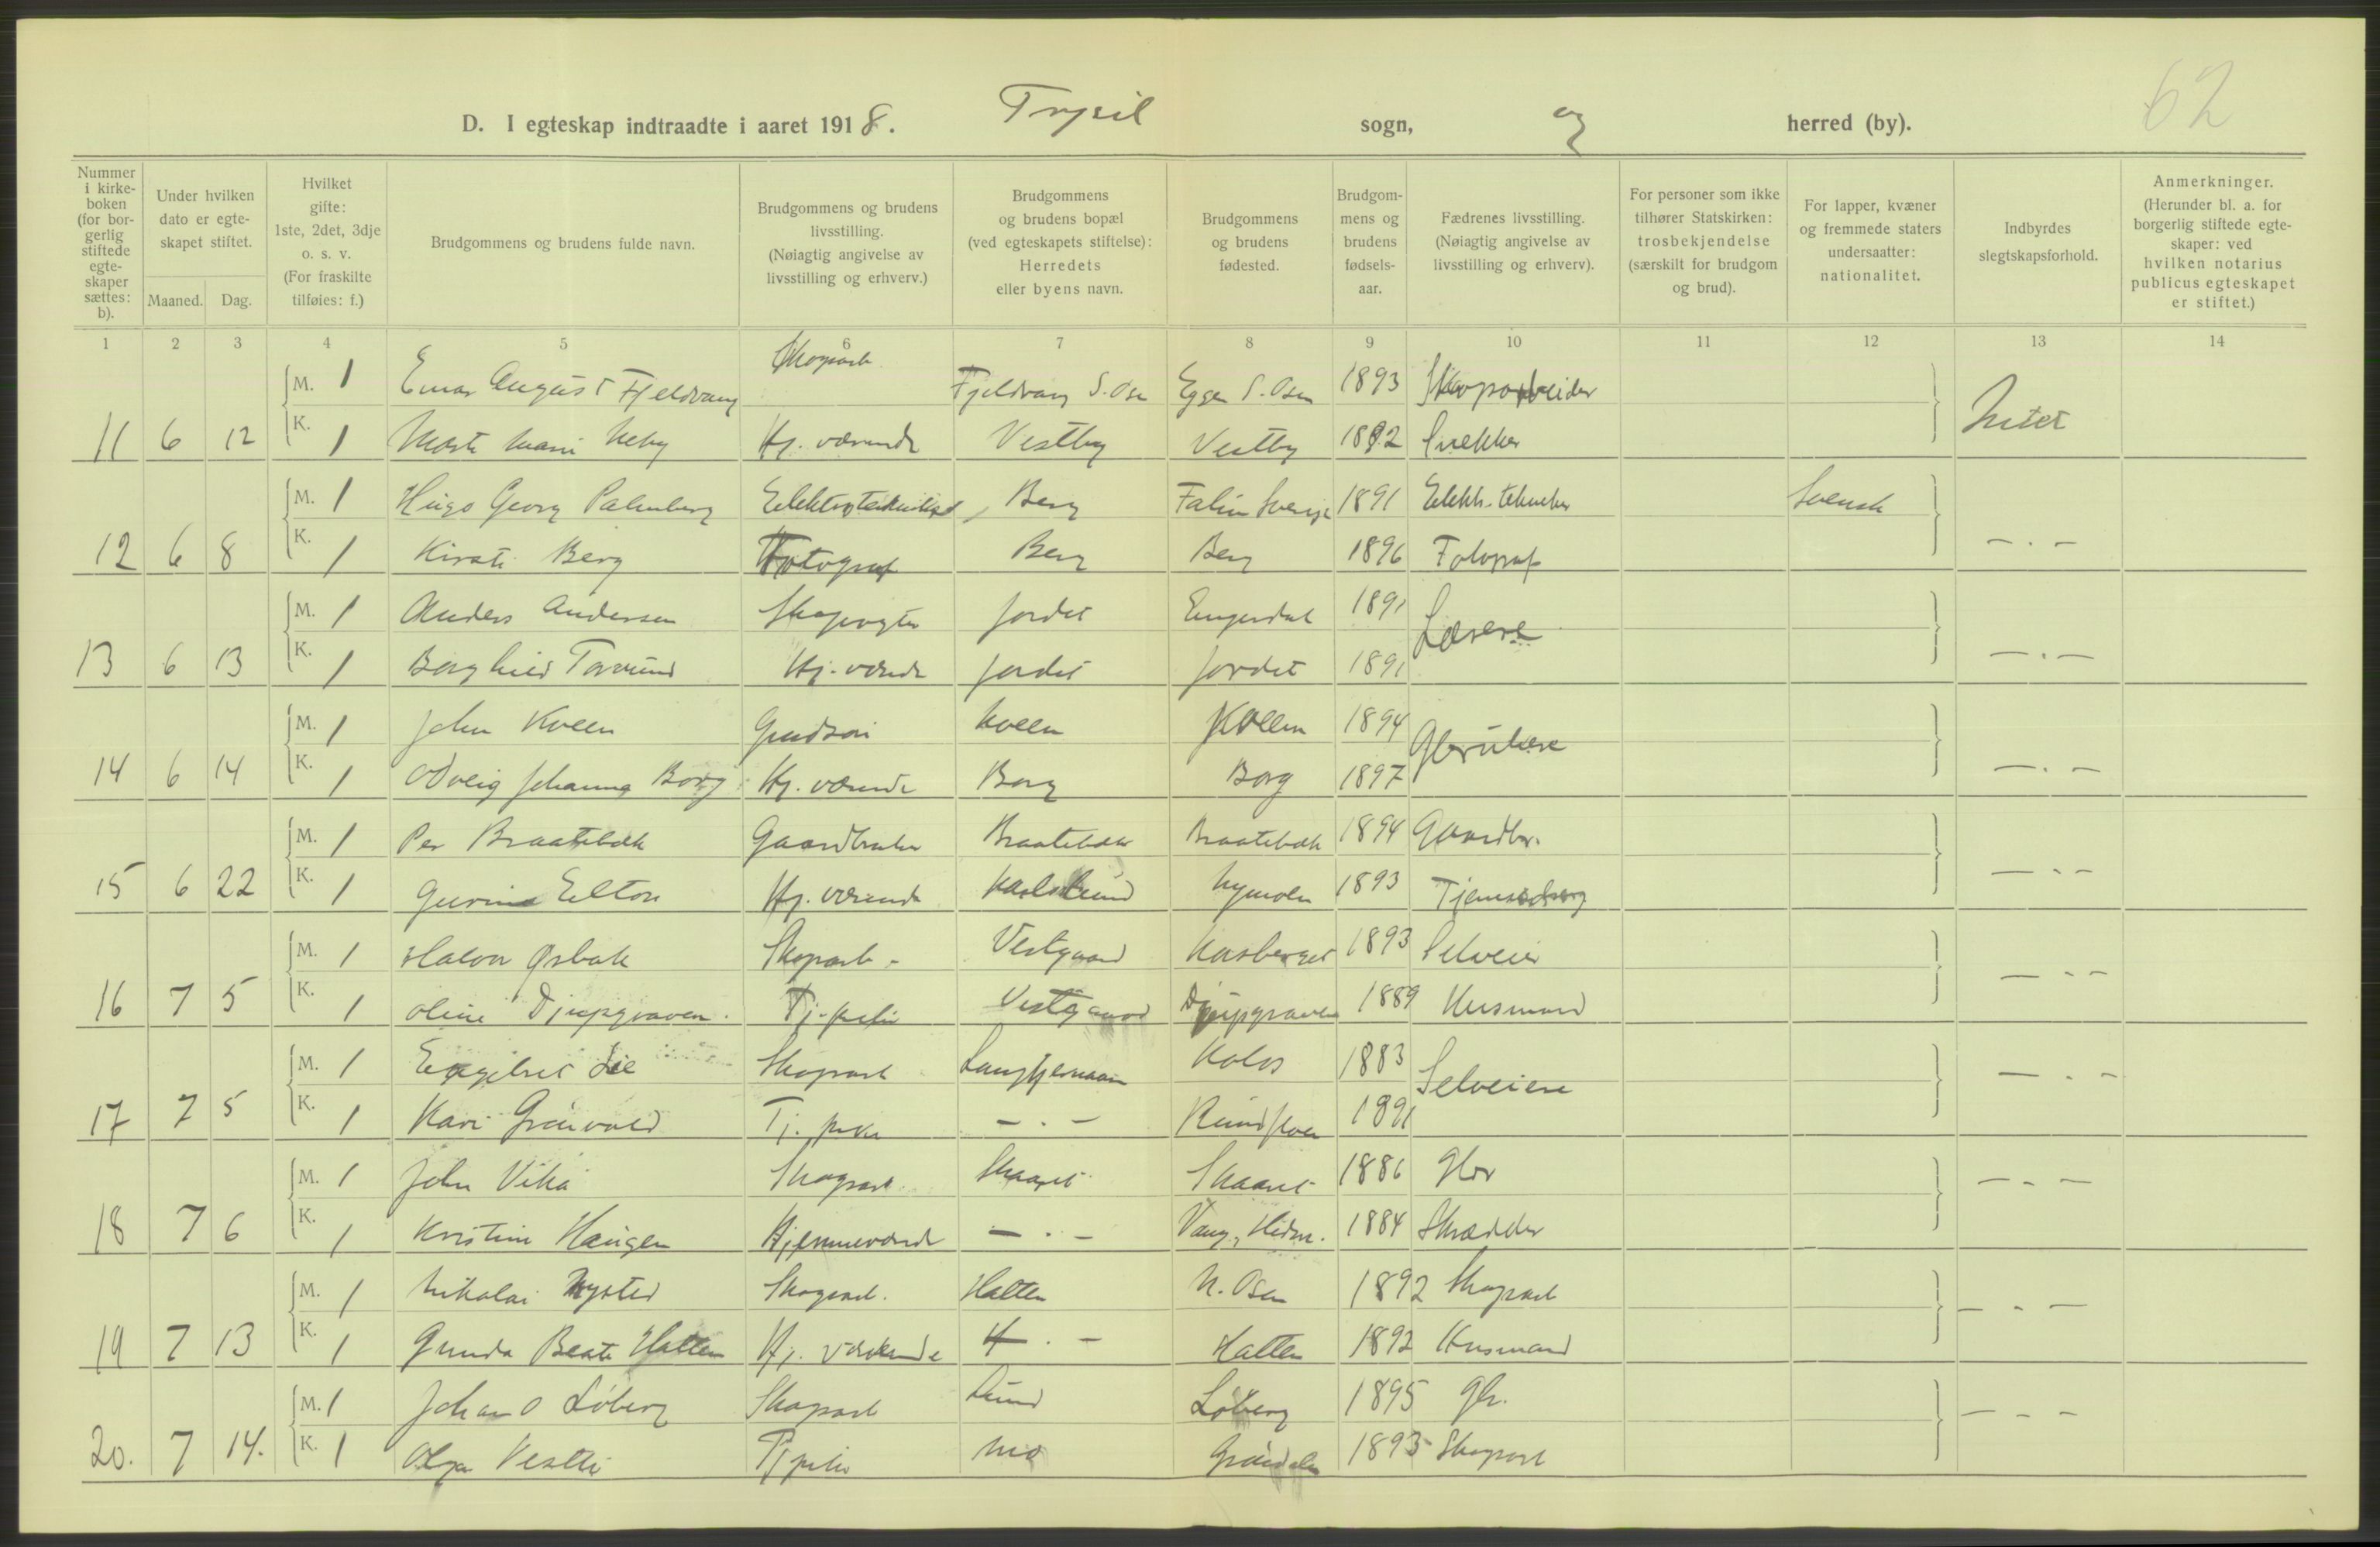 62
D. I egteskap indtraadte i aaret 1918. Trysil sogn, og herred (by).
Nummer i kirkeboken (for borgerlig stiftede egteskaper sættes: b).
Under hvilken dato er egteskapet stiftet.
Maaned. Dag.
Hvilket gifte: 1ste, 2det, 3dje o. s. v. (For fraskilte tilføies: f.)
Brudgommens og brudens fulde navn.
Brudgommens og brudens livsstilling. (Nøiagtig angivelse av livsstilling og erhverv.)
Brudgommens og brudens bopæl (ved egteskapets stiftelse): Herredets eller byens navn.
Brudgommens og brudens fødested.
Brudgommens og brudens fødselsaar.
Fædrenes livsstilling. (Nøiagtig angivelse av livsstilling og erhverv).
For personer som ikke tilhører Statskirken: trosbekjendelse (særskilt for brudgom og brud).
For lapper, kvæner og fremmede staters undersaatter: nationalitet.
Indbyrdes slegtskapsforhold.
Anmerkninger. (Herunder bl. a. for borgerlig stiftede egteskaper: ved hvilken notarius publicus egteskapet er stiftet.)
1 2 3 4 5 6 7 8 9 10 11 12 13 14
M. 1 Einar August Fjeldvang Skogarb. Fjeldvang S. Osen Eggen S. Osen 1893 Skogarbeider
11 6 12 K. 1 Marie Neby Hj. værende Vestby Vestby 1892 Snekker Intet
M. 1 Hugo Georg Palmberg Berg Falun Sverige 1891 Elektr. tekniker Svensk
12 6 8 K. 1 Kirsti Berg Fotograf Berg Berg 1896 Fotograf — . —
M. 1 Anders Andersen Skogvogter Jordet Engerdal 1891 Lærere
13 6 13 K. 1 Borghild Hj. værende Jordet Jordet 1891 — . —
M. 1 John Kveen Kveen 1894 Gbrukere
14 6 14 K. 1 Johanna Borg Hj. værende Borg Borg 1897 — . —
M. 1 Per Braatebæk Gaardbruker Braatebæk Braatebæk 1894 Gaardbr.
15 6 22 K. 1 Gurine Elton Hj. værende Karlslund Nymoen 1893 — . —
M. 1 Halvor Ørbæk Skogarb. Vestgaard 1893 Selveier
16 7 5 K. 1 Oline Djupgraven Tj. pike Vestgaard Djupgraven 1889 Husmand — . —
M. 1 Lie Skogarb. Kolos 1883 Selveiere
17 7 5 K. 1 Kari Grønvold Tj. pike — . — Rundfloen 1891 — . —
M. 1 John Vika Skogarb. Skaaret Skaaret 1886 Gbr
18 7 6 K. 1 Kristine Haugen Hjemmeværende — . — Vang, Hedm. 1884 Skrædder — . —
M. 1 Nikolai Nysted Skogarb. Halten N. Osen 1892 Skogarb.
19 7 13 K. 1 Gunda Beate Halten Hj. værende — . — Halten 1892 Husmand — . —
M. 1 Johan O Løberg Skogarb. Lund Løberg 1895 Gbr.
20. 7 14. K. 1 Olga Vestli Tj pike Mo Grøndalen 1893 Skogarb. — . —